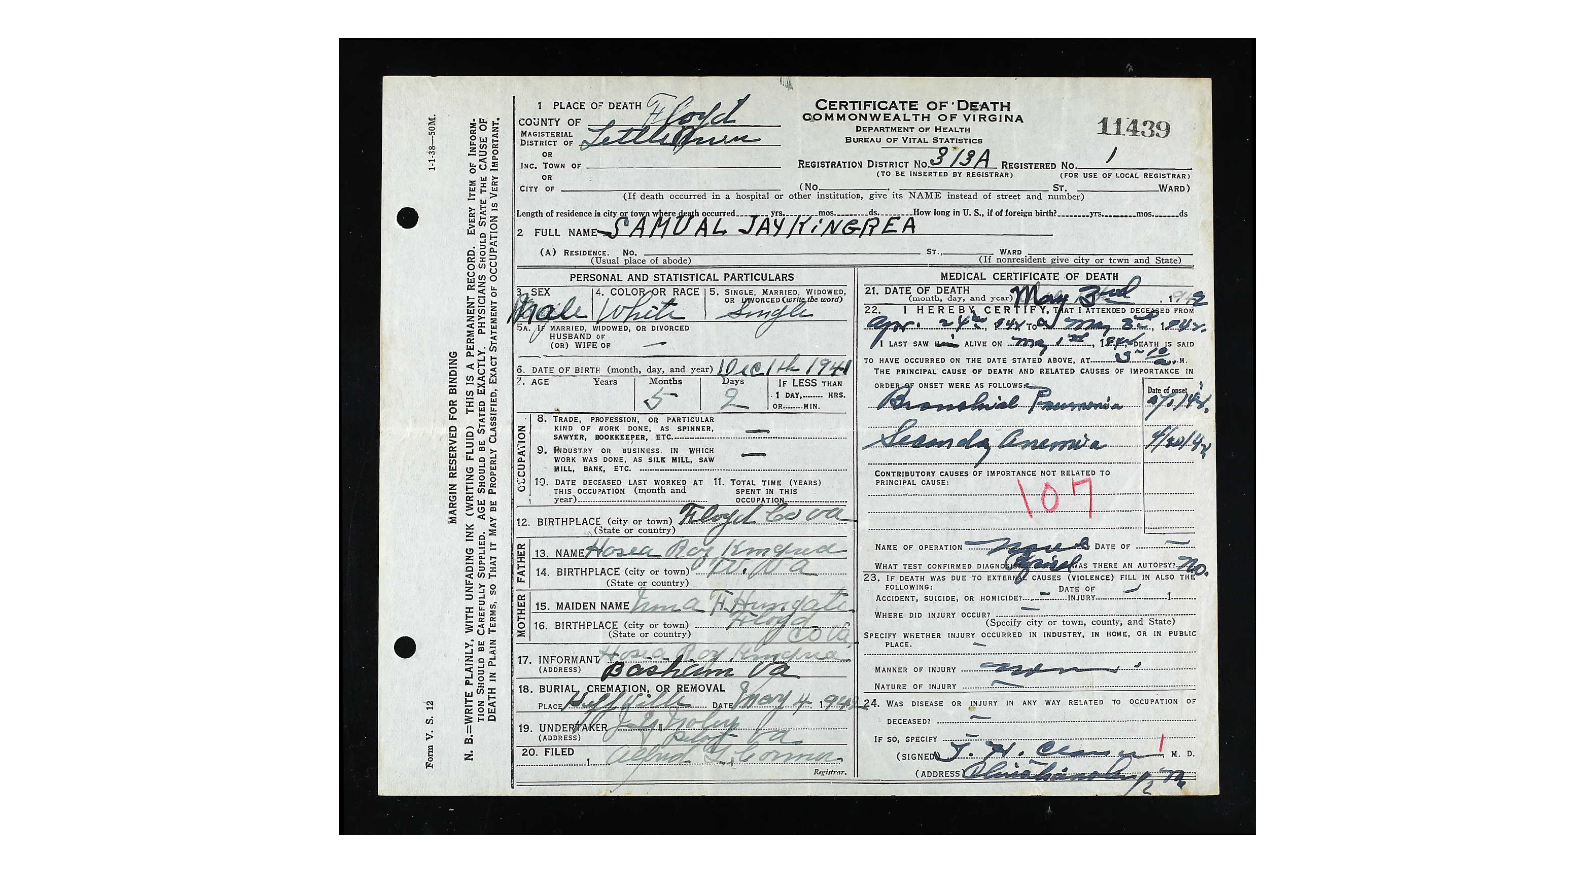 1-1-38—50M.
MARGIN RESERVED FOR BINDING
N. B.—WRITE PLAINLY, WITH UNFADING INK (WRITING FLUID) THIS IS A PERMANENT RECORD. EVERY ITEM OF INFORM-
TION SHOULD BE CAREFULLY SUPPLIED. AGE SHOULD BE STATED EXACTLY. PHYSICIANS SHOULD STATE THE CAUSE OF
DEATH IN PLAIN TERMS, SO THAT IT MAY BE PROPERLY CLASSIFIED. EXACT STATEMENT OF OCCUPATION IS VERY IMPORTANT.
Form V. S. 12
1 PLACE OF DEATH
COUNTY OF Floyd
MAGISTERIAL
DISTRICT OF Little River
OR
INC. TOWN OF
OR
CITY OF
CERTIFICATE OF DEATH
COMMONWEALTH OF VIRGINIA
DEPARTMENT OF HEALTH
BUREAU OF VITAL STATISTICS
11439
REGISTRATION DISTRICT No. 313A REGISTERED No. 1
(TO BE INSERTED BY REGISTRAR) (FOR USE OF LOCAL REGISTRAR)
(No. ST. WARD)
(If death occurred in a hospital or other institution, give its NAME instead of street and number)
Length of residence in city or town where death occurred yrs. mos. ds. How long in U. S., if of foreign birth? yrs. mos. ds
2 FULL NAME SAMUAL JAY KINGREA
(A) RESIDENCE. No. ST., WARD
(Usual place of abode) (If nonresident give city or town and State)
PERSONAL AND STATISTICAL PARTICULARS
3. SEX 4. COLOR OR RACE 5. SINGLE, MARRIED, WIDOWED, OR DIVORCED (write the word)
Male White Single
5A. IF MARRIED, WIDOWED, OR DIVORCED
HUSBAND OF
(OR) WIFE OF —
6. DATE OF BIRTH (month, day, and year) Dec 1th 1941
7. AGE Years Months Days IF LESS THAN
1 DAY, HRS.
OR MIN.
5 2
OCCUPATION
8. TRADE, PROFESSION, OR PARTICULAR
KIND OF WORK DONE, AS SPINNER,
SAWYER, BOOKKEEPER, ETC. —
9. INDUSTRY OR BUSINESS. IN WHICH
WORK WAS DONE, AS SILK MILL, SAW
MILL, BANK, ETC. —
10. DATE DECEASED LAST WORKED AT
THIS OCCUPATION (month and
year)
11. TOTAL TIME (YEARS)
SPENT IN THIS
OCCUPATION
12. BIRTHPLACE (city or town) Floyd Co Va
(State or country)
FATHER
13. NAME Hosea Roy Kingrea
14. BIRTHPLACE (city or town) W. Va
(State or country)
MOTHER
15. MAIDEN NAME F. Hungate
16. BIRTHPLACE (city or town) Floyd
(State or country) Co Va
17. INFORMANT Hosea Roy Kingrea
(ADDRESS) Basham Va
18. BURIAL, CREMATION, OR REMOVAL
PLACE Huffville DATE May 4, 1942
19. UNDERTAKER
(ADDRESS) Pilot Va
20. FILED Alfred Connor
Registrar.
MEDICAL CERTIFICATE OF DEATH
21. DATE OF DEATH
(month, day, and year) May 3rd, 1942
22. I HEREBY CERTIFY, THAT I ATTENDED DECEASED FROM
Apr. 24th, 1942 TO May 3rd, 1942.
I LAST SAW him ALIVE ON May 1st, 1942, DEATH IS SAID
TO HAVE OCCURRED ON THE DATE STATED ABOVE, AT M.
THE PRINCIPAL CAUSE OF DEATH AND RELATED CAUSES OF IMPORTANCE IN
ORDER OF ONSET WERE AS FOLLOWS:
Date of onset
Bronchial Pneumonia
Anemia 4/20/42
CONTRIBUTORY CAUSES OF IMPORTANCE NOT RELATED TO
PRINCIPAL CAUSE:
107
NAME OF OPERATION None DATE OF —
WHAT TEST CONFIRMED DIAGNOSIS? WAS THERE AN AUTOPSY? No.
23. IF DEATH WAS DUE TO EXTERNAL CAUSES (VIOLENCE) FILL IN ALSO THE
FOLLOWING:
ACCIDENT, SUICIDE, OR HOMICIDE? — DATE OF INJURY — 1
WHERE DID INJURY OCCUR? —
(Specify city or town, county, and State)
SPECIFY WHETHER INJURY OCCURRED IN INDUSTRY, IN HOME, OR IN PUBLIC
PLACE. —
MANNER OF INJURY
NATURE OF INJURY —
24. WAS DISEASE OR INJURY IN ANY WAY RELATED TO OCCUPATION OF
DECEASED? —
IF SO, SPECIFY —
(SIGNED) M. D.
(ADDRESS) Christiansburg, Va